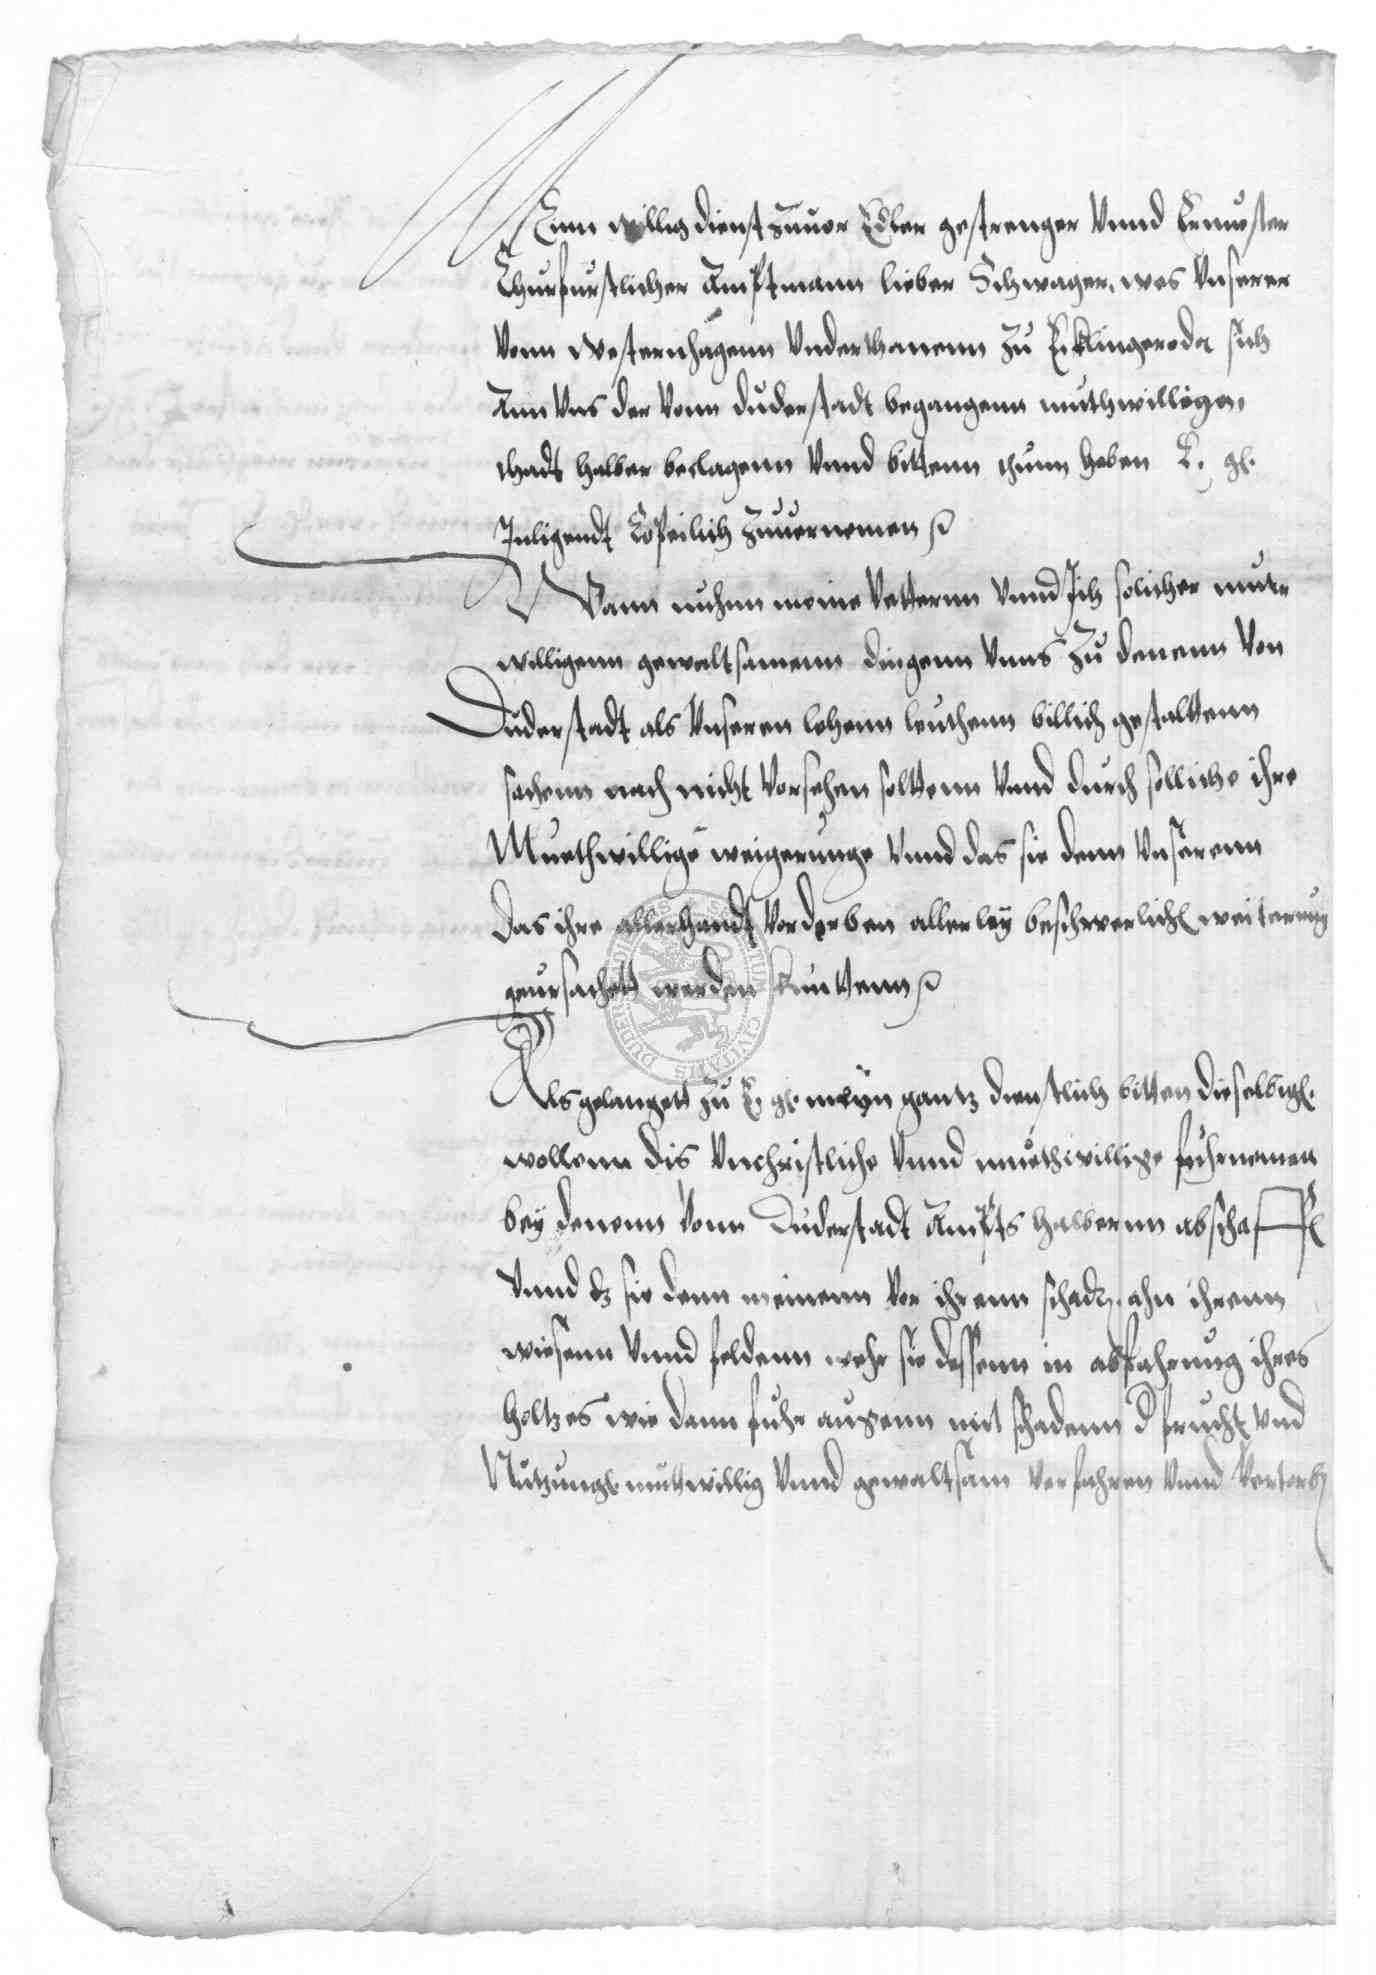 Mein willig dienst zuuor Edler gestrenger Vnnd Ernuester
Churfurstlicher Amptmann lieber Schwager, was Vnserer
Vonn Westernhagenn Vnderthanenn zu Ecklingeroda sich
Ann Vns der Vonn duderstadt begangenn muthwilligen
thadt halber beclagenn Vnnd bittenn thunn haben E. gl.
Inligendt Copeilich zuuernemen
Wann nuhnn meine Vetternn Vnnd Ich solicher mut=
willigenn gewaltsamenn dingenn Vnns zu denenn Von
Duderstadt als Vnseren lehenn leuthenn billich gestaltenn
sachenn nach nicht Vorsehen soltenn Vnnd durch solliche ihre
Muethwillige weigerunge Vnnd das sie denn Vnserenn
Das ihre allerhandt Vorderben allerley beschwerlich weiterung
geursachett werden kunttenn
Als gelangett zu E. gl. meyn gantz dienstlich bitten dieselbige
wollenn dis Vnchristliche Vnnd muethwillige fuhrnemen
bey denenn Vonn Duderstadt Ampts halbernn abschaffen
Vnnd dz sie denn meinenn Vor ihrenn schaden ahn ihrenn
wiesenn Vnnd feldenn wehr sie dessenn in abfahrung ihres
holtzes wie dann fuhr augenn mit schadenn d frucht Vnd
Nutzunge muttwillig Vnnd gewaltsam Verfahren Vnnd Verterben
DUDER CIVITATIS